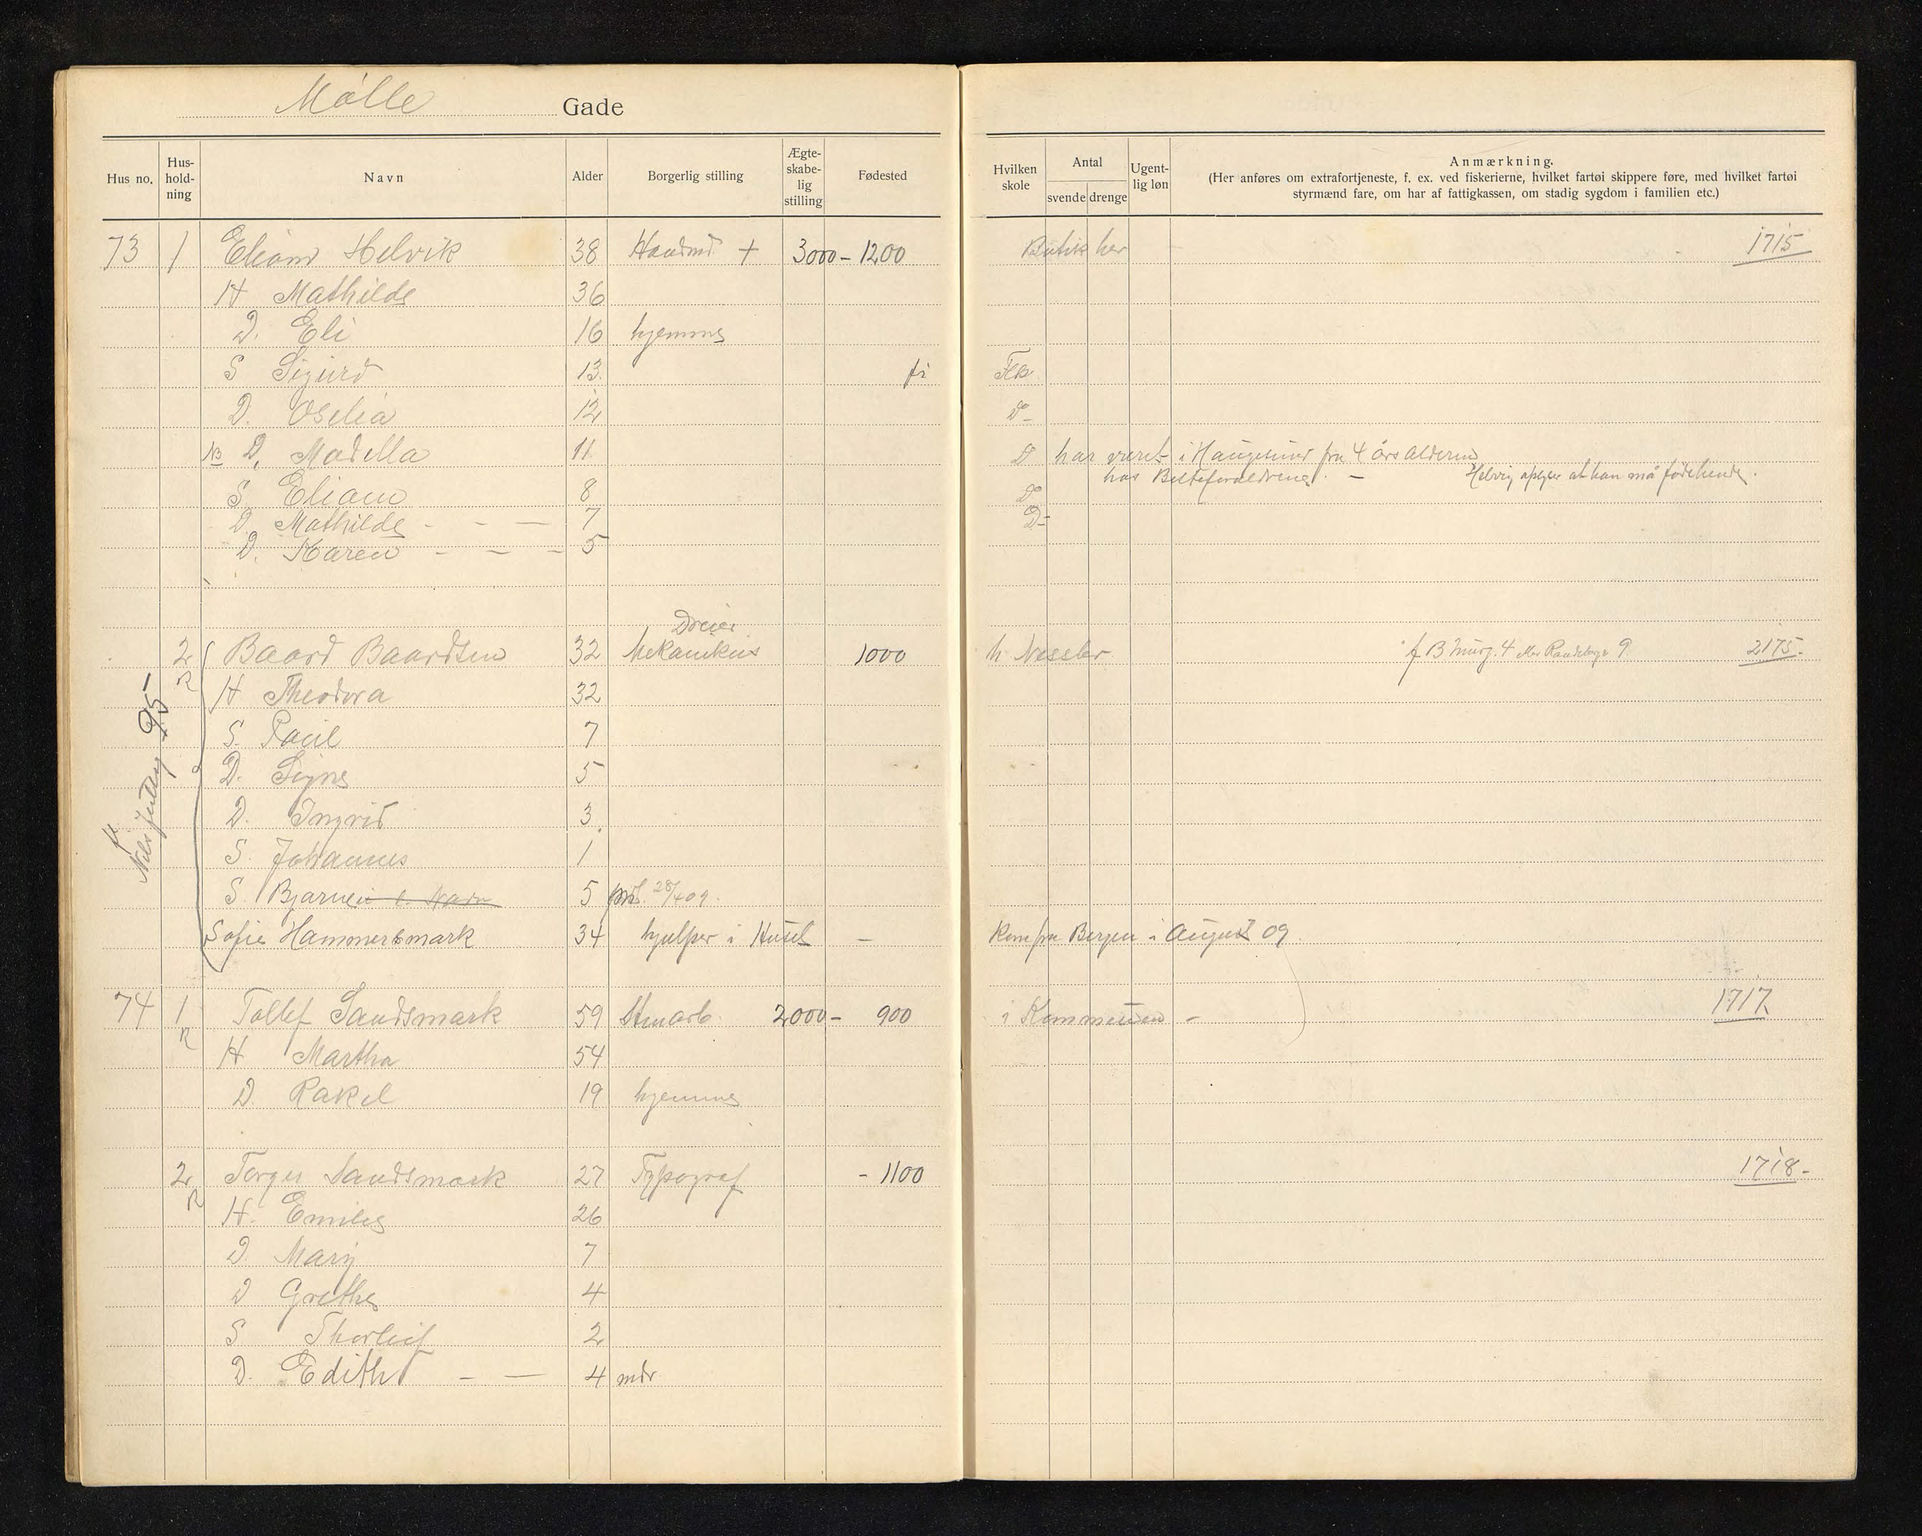 Mølle Gade
Hus no. Hus-hold-ning Navn Alder Borgerlig stilling Ægte-skabe-lig stilling Fødested Hvilken skole Antal svende drenge Ugent-lig løn Anmærkning.
(Her anføres om extrafortjeneste, f. ex. ved fiskerierne, hvilket fartøi skippere føre, med hvilket fartøi
styrmænd fare, om har af fattigkassen, om stadig sygdom i familien etc.)
73 1 Eliam Helvik 38 + 3000 – 1200 Butik her 1715
H Mathilde 36
D. Eli 16 hjemme
S Sigurd 13 Flk
D. Oselia 12 D–
NB D. Madella 11 D har været i Haugesund fra 4 års alderen
hos Besteforældrene. – Helvig oplyser at han må føde hende.
S. Eliam 8 D–
D. Mathilde – – – 7 D–
D. Karen – – – 5
Dreier
2 Baard Baardsen 32 Mekanikus 1000 2175–
R H Theodora 32
S. Paul 7
D. Signe 5
D. Ingrid 3
S. Johannes 1
S. Bjarne 5 28/4 09.
Sofie Hammersmark 34 hjelper i Huset – Kom fra Bergen i August 09
95
74 1 Tollef Sandsmark 59 Stenarb. 2000 – 900 i Kommunen – 1717
R H Martha 54
D. Rakel 19 hjemme
2 Torger Sandsmark 27 Typograf – 1100 1718–
R H. Emilie 26
D. Mary 7
D Grethe 4
S Thorleif 2
D. Edith – — 4 mdr